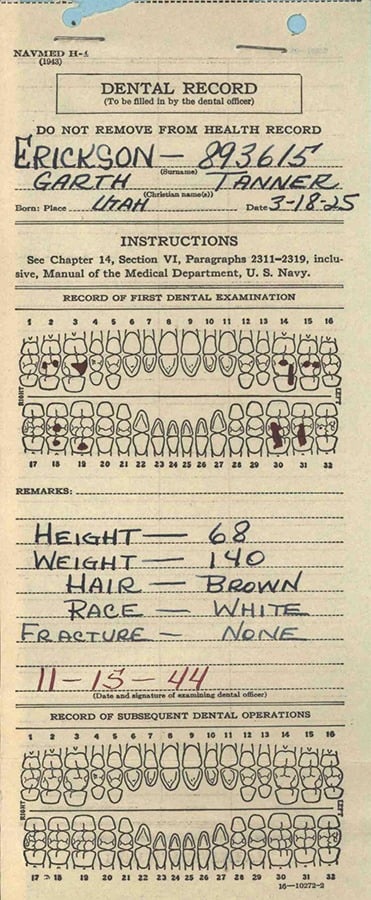 NAVMED H-4
(1943)
DENTAL RECORD
(To be filled in by the dental officer)
DO NOT REMOVE FROM HEALTH RECORD
ERICKSON — 893615
(Surname)
GARTH TANNER
(Christian name(s))
Born: Place UTAH Date 3-18-25
INSTRUCTIONS
See Chapter 14, Section VI, Paragraphs 2311–2319, inclu-
sive, Manual of the Medical Department, U. S. Navy.
RECORD OF FIRST DENTAL EXAMINATION
1 2 3 4 5 6 7 8 9 10 11 12 13 14 15 16
RIGHT LEFT
17 18 19 20 21 22 23 24 25 26 27 28 29 30 31 32
REMARKS:
HEIGHT — 68
WEIGHT — 140
HAIR — BROWN
RACE — WHITE
FRACTURE — NONE
11-15-44
(Date and signature of examining dental officer)
RECORD OF SUBSEQUENT DENTAL OPERATIONS
1 2 3 4 5 6 7 8 9 10 11 12 13 14 15 16
RIGHT LEFT
17 18 19 20 21 22 23 24 25 26 27 28 29 30 31 32
16—10272-2